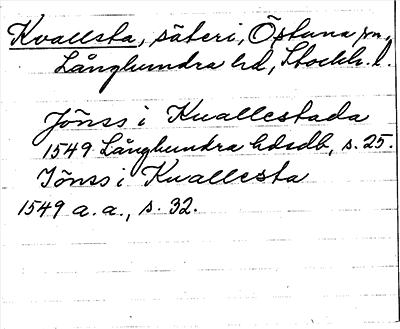 Kvallsta, säteri, Östuna sn,
Långhundra hd, Stockh. l.
Jönss i Kuallestada
1549 Långhundra hdsdb, s. 25.
Jönss i Kuallesta
1549 a. a., s. 32.